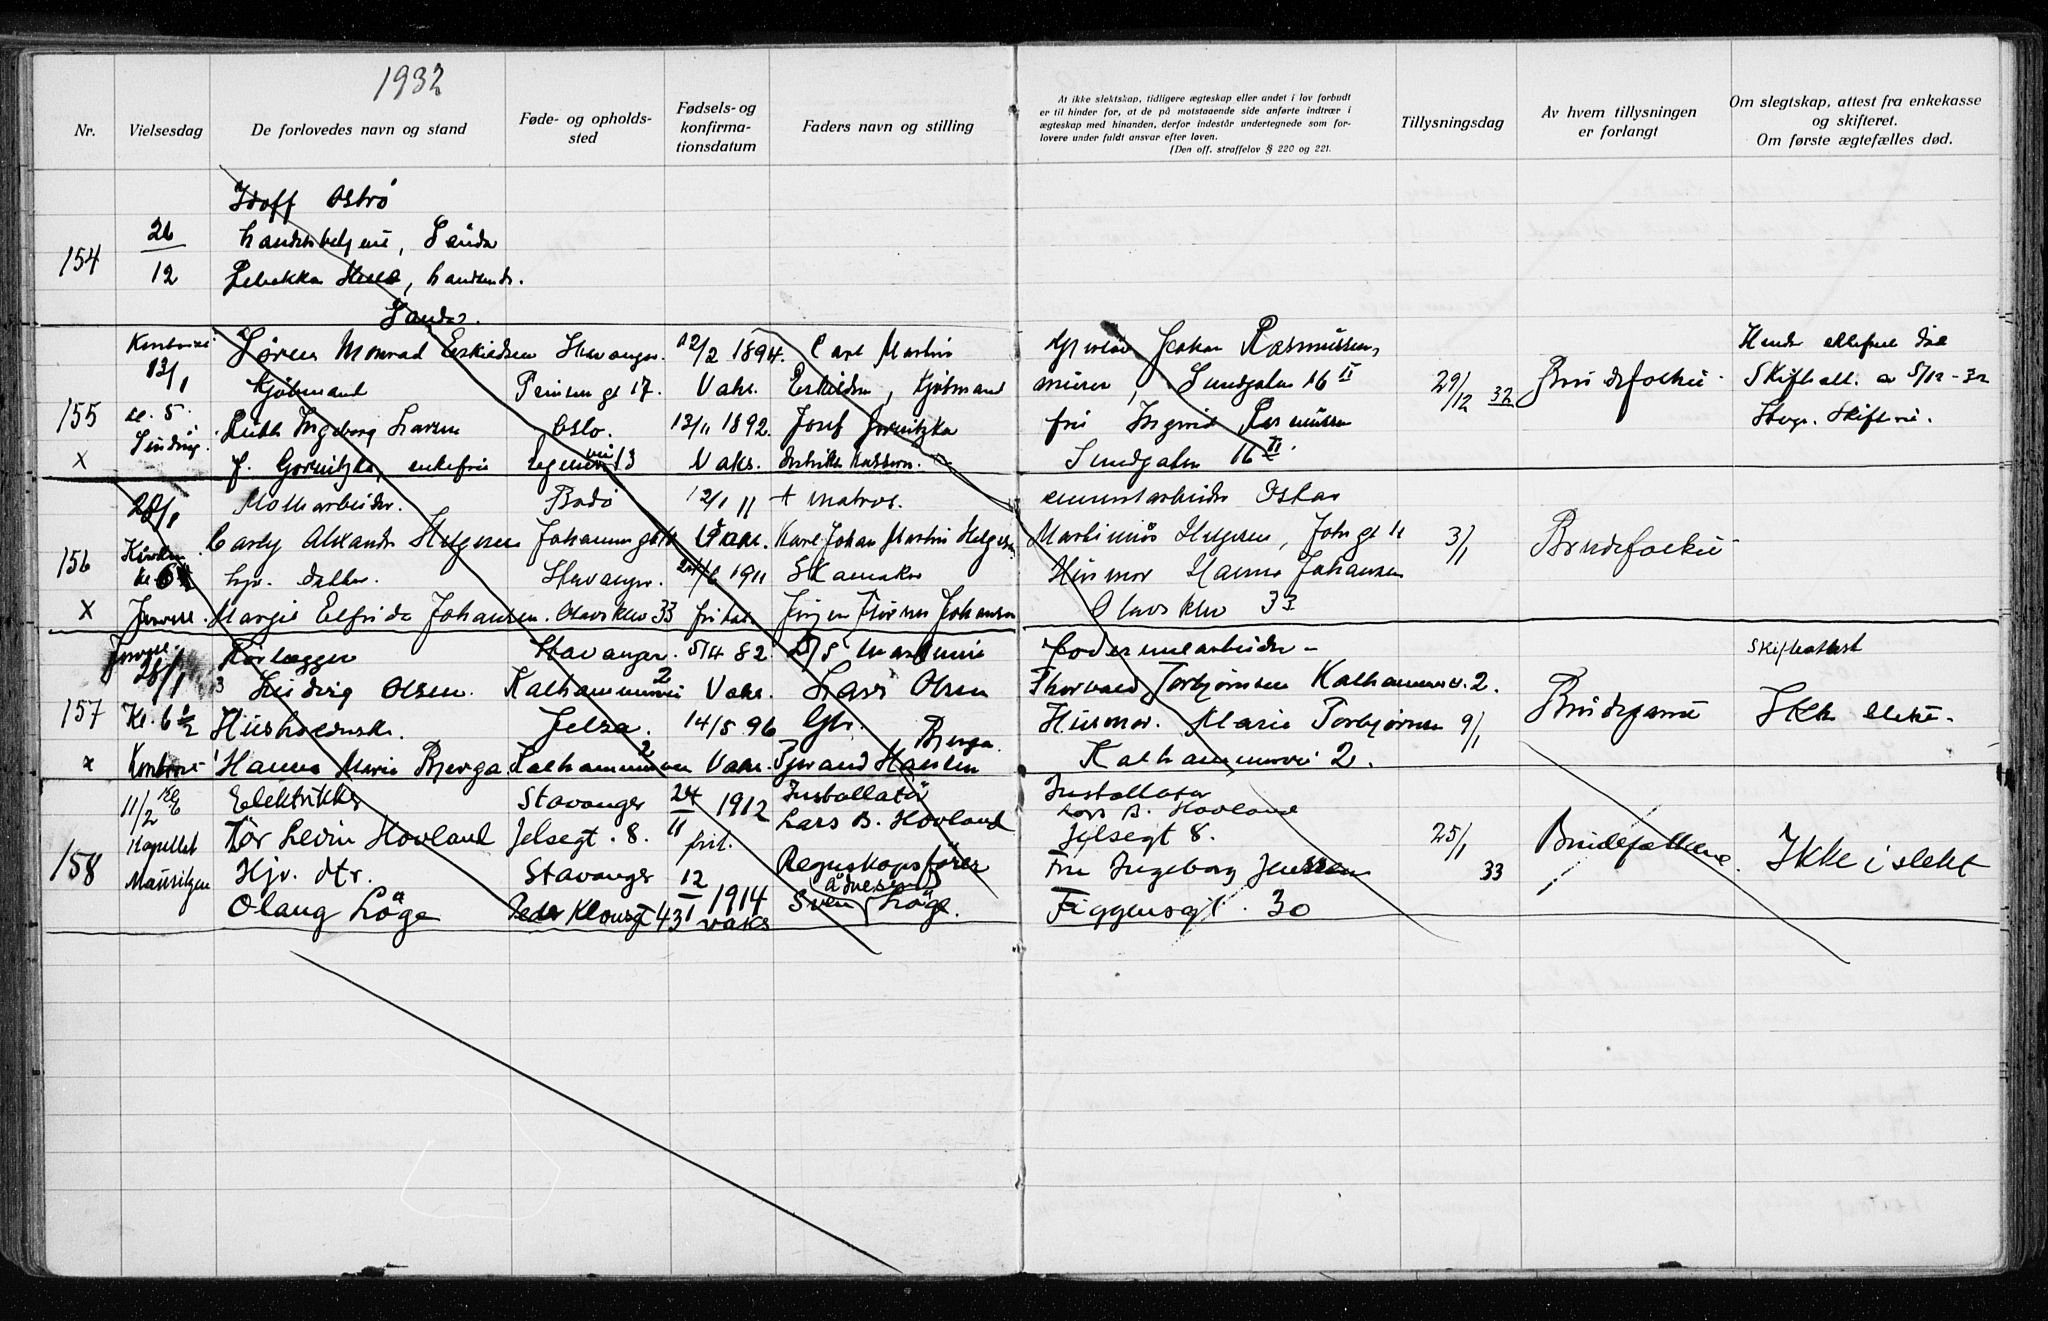 1932
Nr.
Vielsesdag
De forlovedes navn og stand
Føde- og opholds-
sted
Fødsels- og
konfirma-
tionsdatum
Faders navn og stilling
At ikke slektskap, tidligere ægteskap eller andet i lov forbudt
er til hinder for, at de på motstaaende side anførte indtrær i
ægteskap med hinanden, derfor indestår undertegnede som for-
lovere under fuldt ansvar efter loven.
(Den off. straffelov § 220 og 221.
Tillysningsdag
Av hvem tillysningen
er forlangt
Om slegtskap, attest fra enkekasse
og skifteret.
Om første ægtefælles død.
154
26
12
Ostrø
Sauda
Rebekka
Sauda.
155
13/1
kl. 5.
X
Søren Monrad Eskildsen
Kjøbmand
Ruth Ingeborg Larsen
f. Gornitzka, enkefrue
Stavanger
17.
Oslo.
13
12/2 1894.
Vaks.
13/11 1892.
Vaks.
Carl Martin
Eskildsen, Kjøbmand
Josef Gornitzka
Johan Rasmussen,
murer, Sundgaten 16 II
fru Ingrid Rasmussen
Sundgaten 16 II.
29/12 32
Brudefolkene
Skifteatt. av 5/12-32
Stvgr. Skifterett.
156
28/1
X
Carly Helgesen
hjv. datter.
Margit Elfrida Johansen.
Bodø
Stavanger.
Olavsklev 33
12/1 11
Vaks.
24/6 1911
+ matros.
Karl Johan Martin Helgesen
Skomaker
Johansen
Oskar
Martinius Helgesen, Joh.gt 11
Husmor Hanna Johansen
Olavsklev 33
3/1
Brudefolkene
157
28/1
Kl. 6 1/2
x
Rørlægger
Ludvig Olsen.
Husholderske.
Hanna Marie Bjerga
Stavanger.
Kalhammervei 2
Jelsa.
Kalhammervei 2
5/4 82.
Vaks.
14/5 96
Vaks.
Lars Olsen
Gbr.
Bjerga.
Hansen
Thorvald Torbjørnsen Kalhammerv. 2.
Husmor. Marie Torbjørnsen
Kalhammervei 2.
9/1
Brudgommen
Skifteattest
Ikke slekt.
158
11/2 kl 6
Kapellet
Elektriker
Tor Levin Hovland
Hjv. dtr.
Olaug Löge
Stavanger
Jelsegt. 8.
Stavanger
Peder Klowsgt 43
24
11 1912
frit.
12
1 1914
vaks
Installatör
Lars B. Hovland
Regnskapsförer
Sven Löge.
Installatør
Lars B. Hovland
Jelsegt 8.
Fru Ingeborg Jenssen
Figgensgt. 30
25/1
33
Brudefolkene.
Ikke i slekt